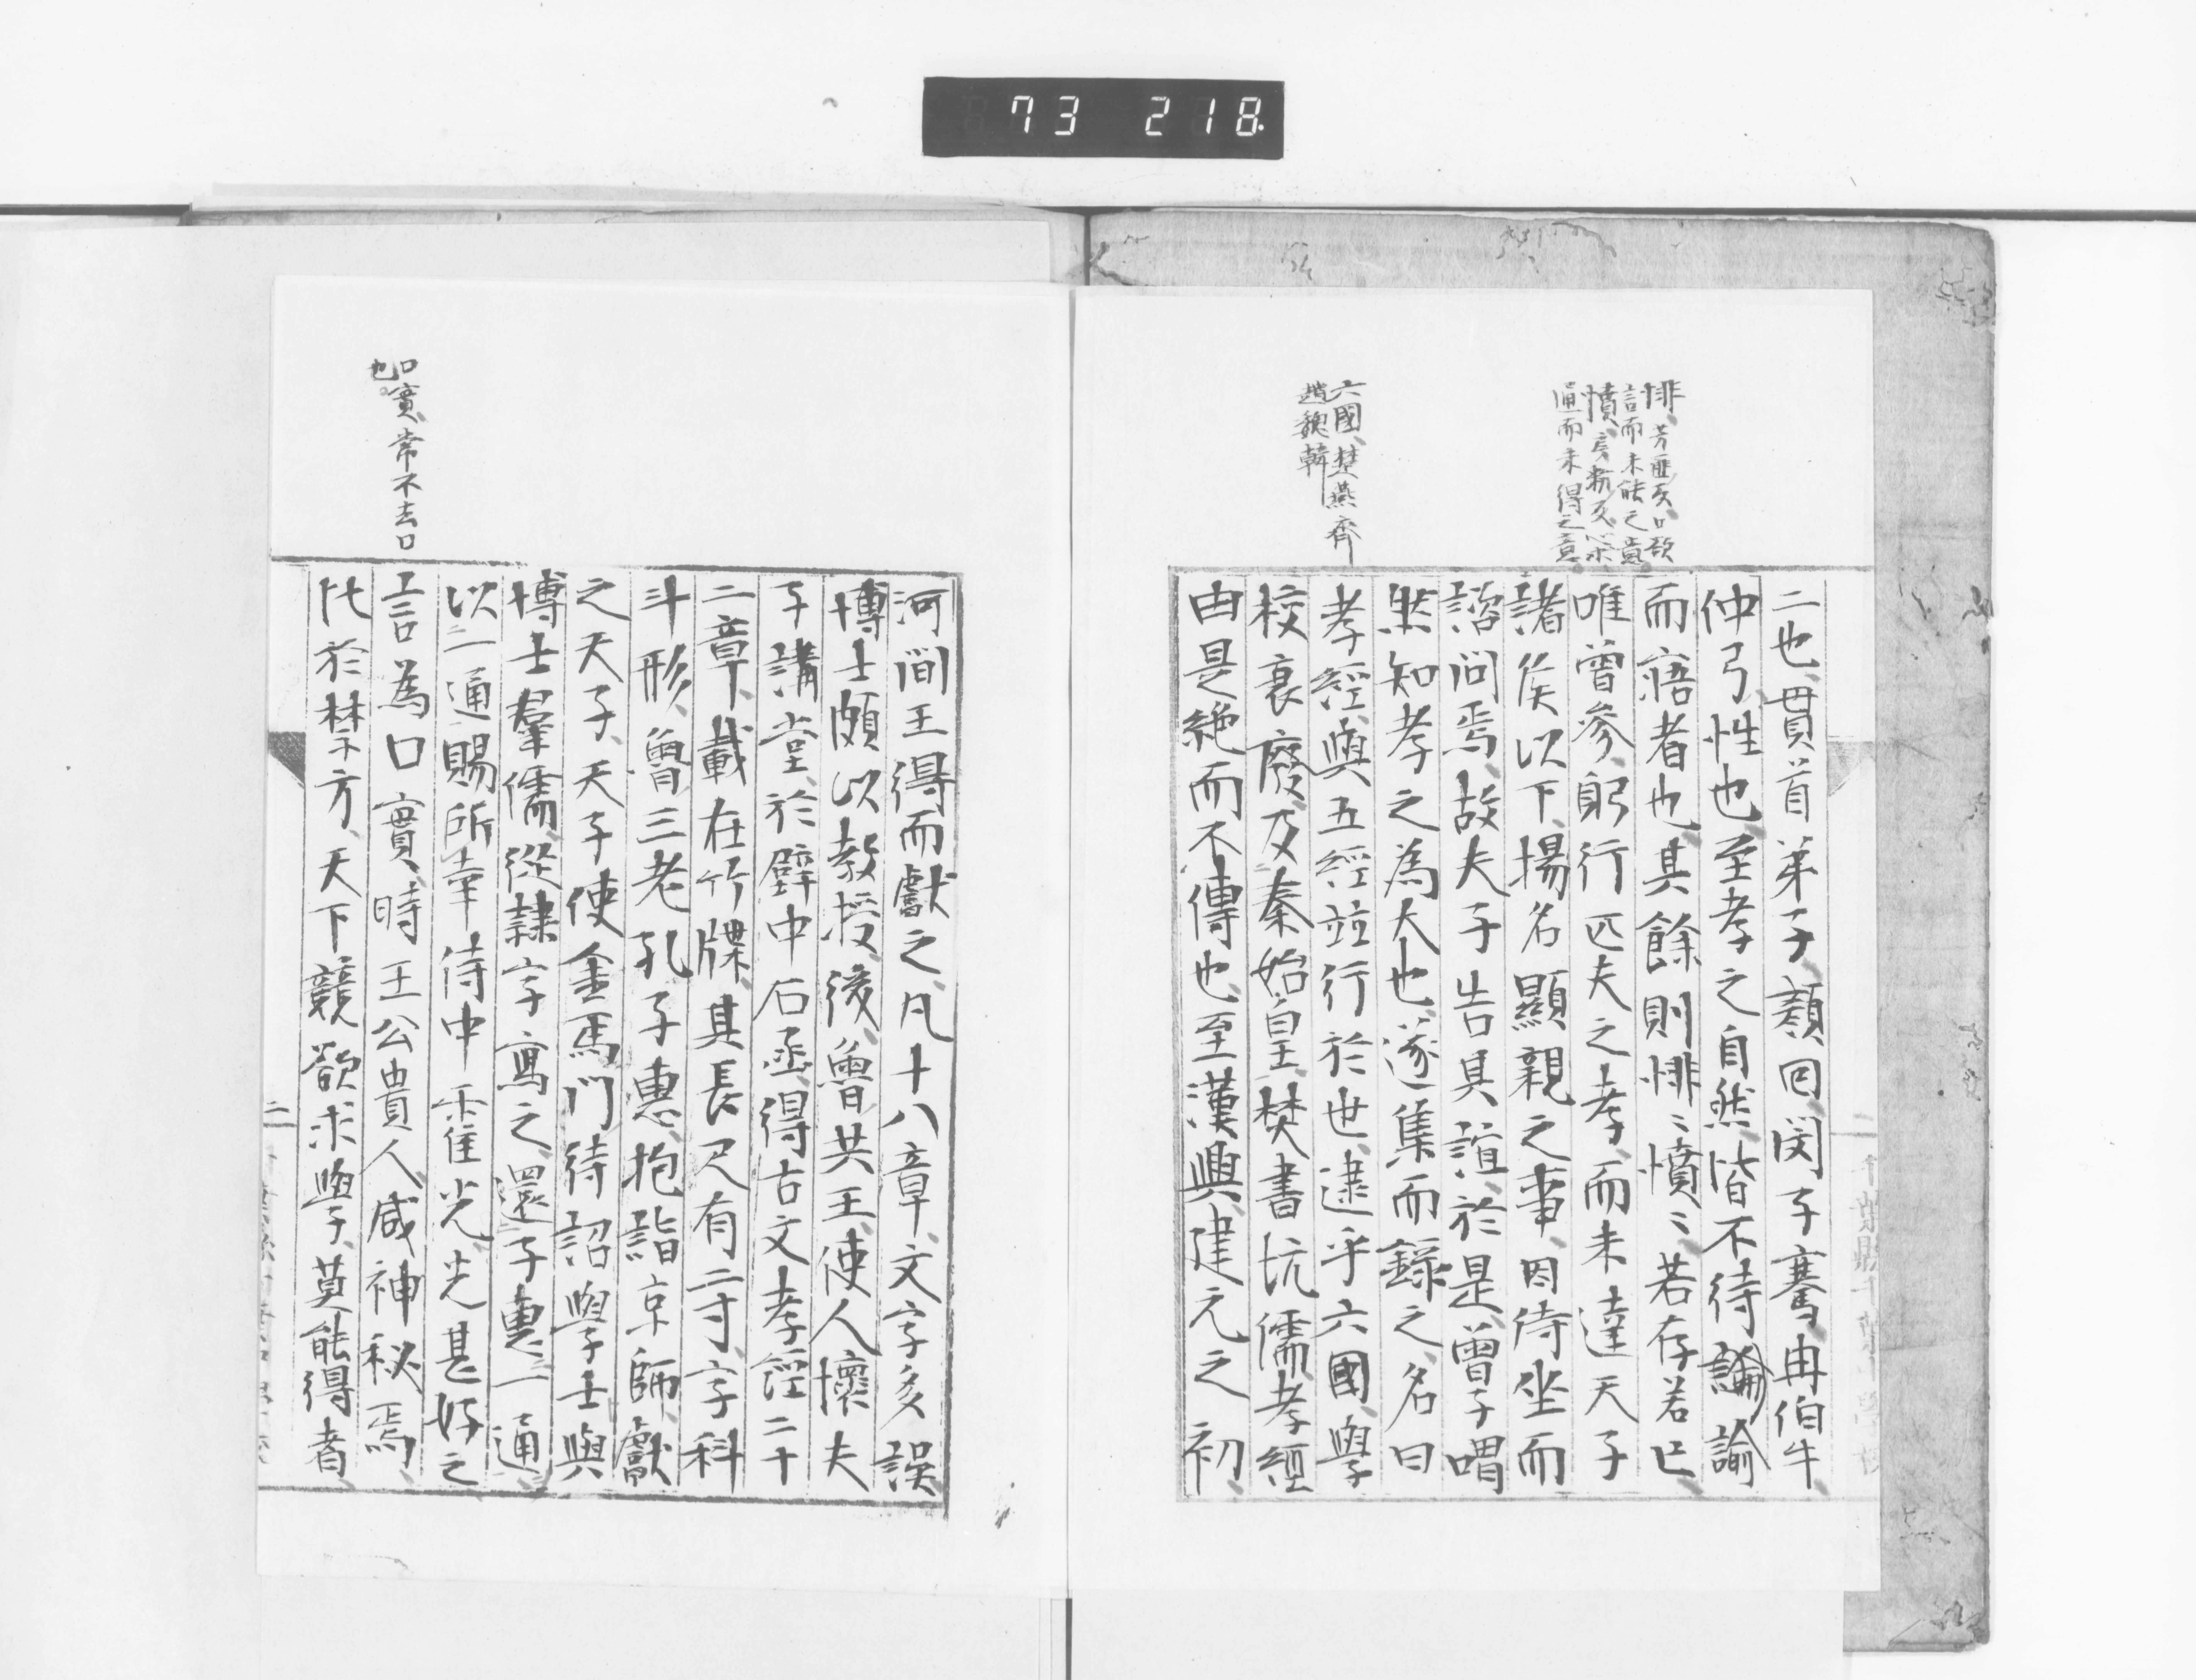 73 218.
悱、芳匪反、口欲
言而未能之意
憤、房粉反、心求
通而未得之意
六國、楚燕齊
趙魏韓
二也、貫首弟子、顏回閔子騫、冉伯牛、
仲弓、性也、至孝之自然、皆不待諭諭
而寤者也、其餘則悱〻憤〻若存若亡
唯曾參、躬行匹夫之孝、而未達天子
諸侯以下、揚名顯親之事、因侍坐而
諮問焉、故夫子告其誼、於是、曾子喟
然知孝之為大也、遂集而錄之、名曰
孝經、與五經竝行於世、逮乎六國、學
校衰廢、及秦始皇、焚書坑儒、孝經
由是絶而不傳也、至漢興、建元之初、
河間王得而獻之、凡十八章、文字多誤
博士頗以教授、後魯共王、使人懷夫
子講堂、於壁中石函、得古文孝經二十
二章、載在竹牒、其長尺有二寸、字科
斗形、魯三老孔子惠、抱詣京師、獻
之天子、天子使金馬門待詔學士與
博士羣儒、從隸字寫之、還子惠一通、
以一通賜所幸侍中霍光、光甚好之
言為口實、時王公貴人、咸神秘焉、
比於禁方、天下競欲求學、莫能得者、
口實、常不去口
也
二